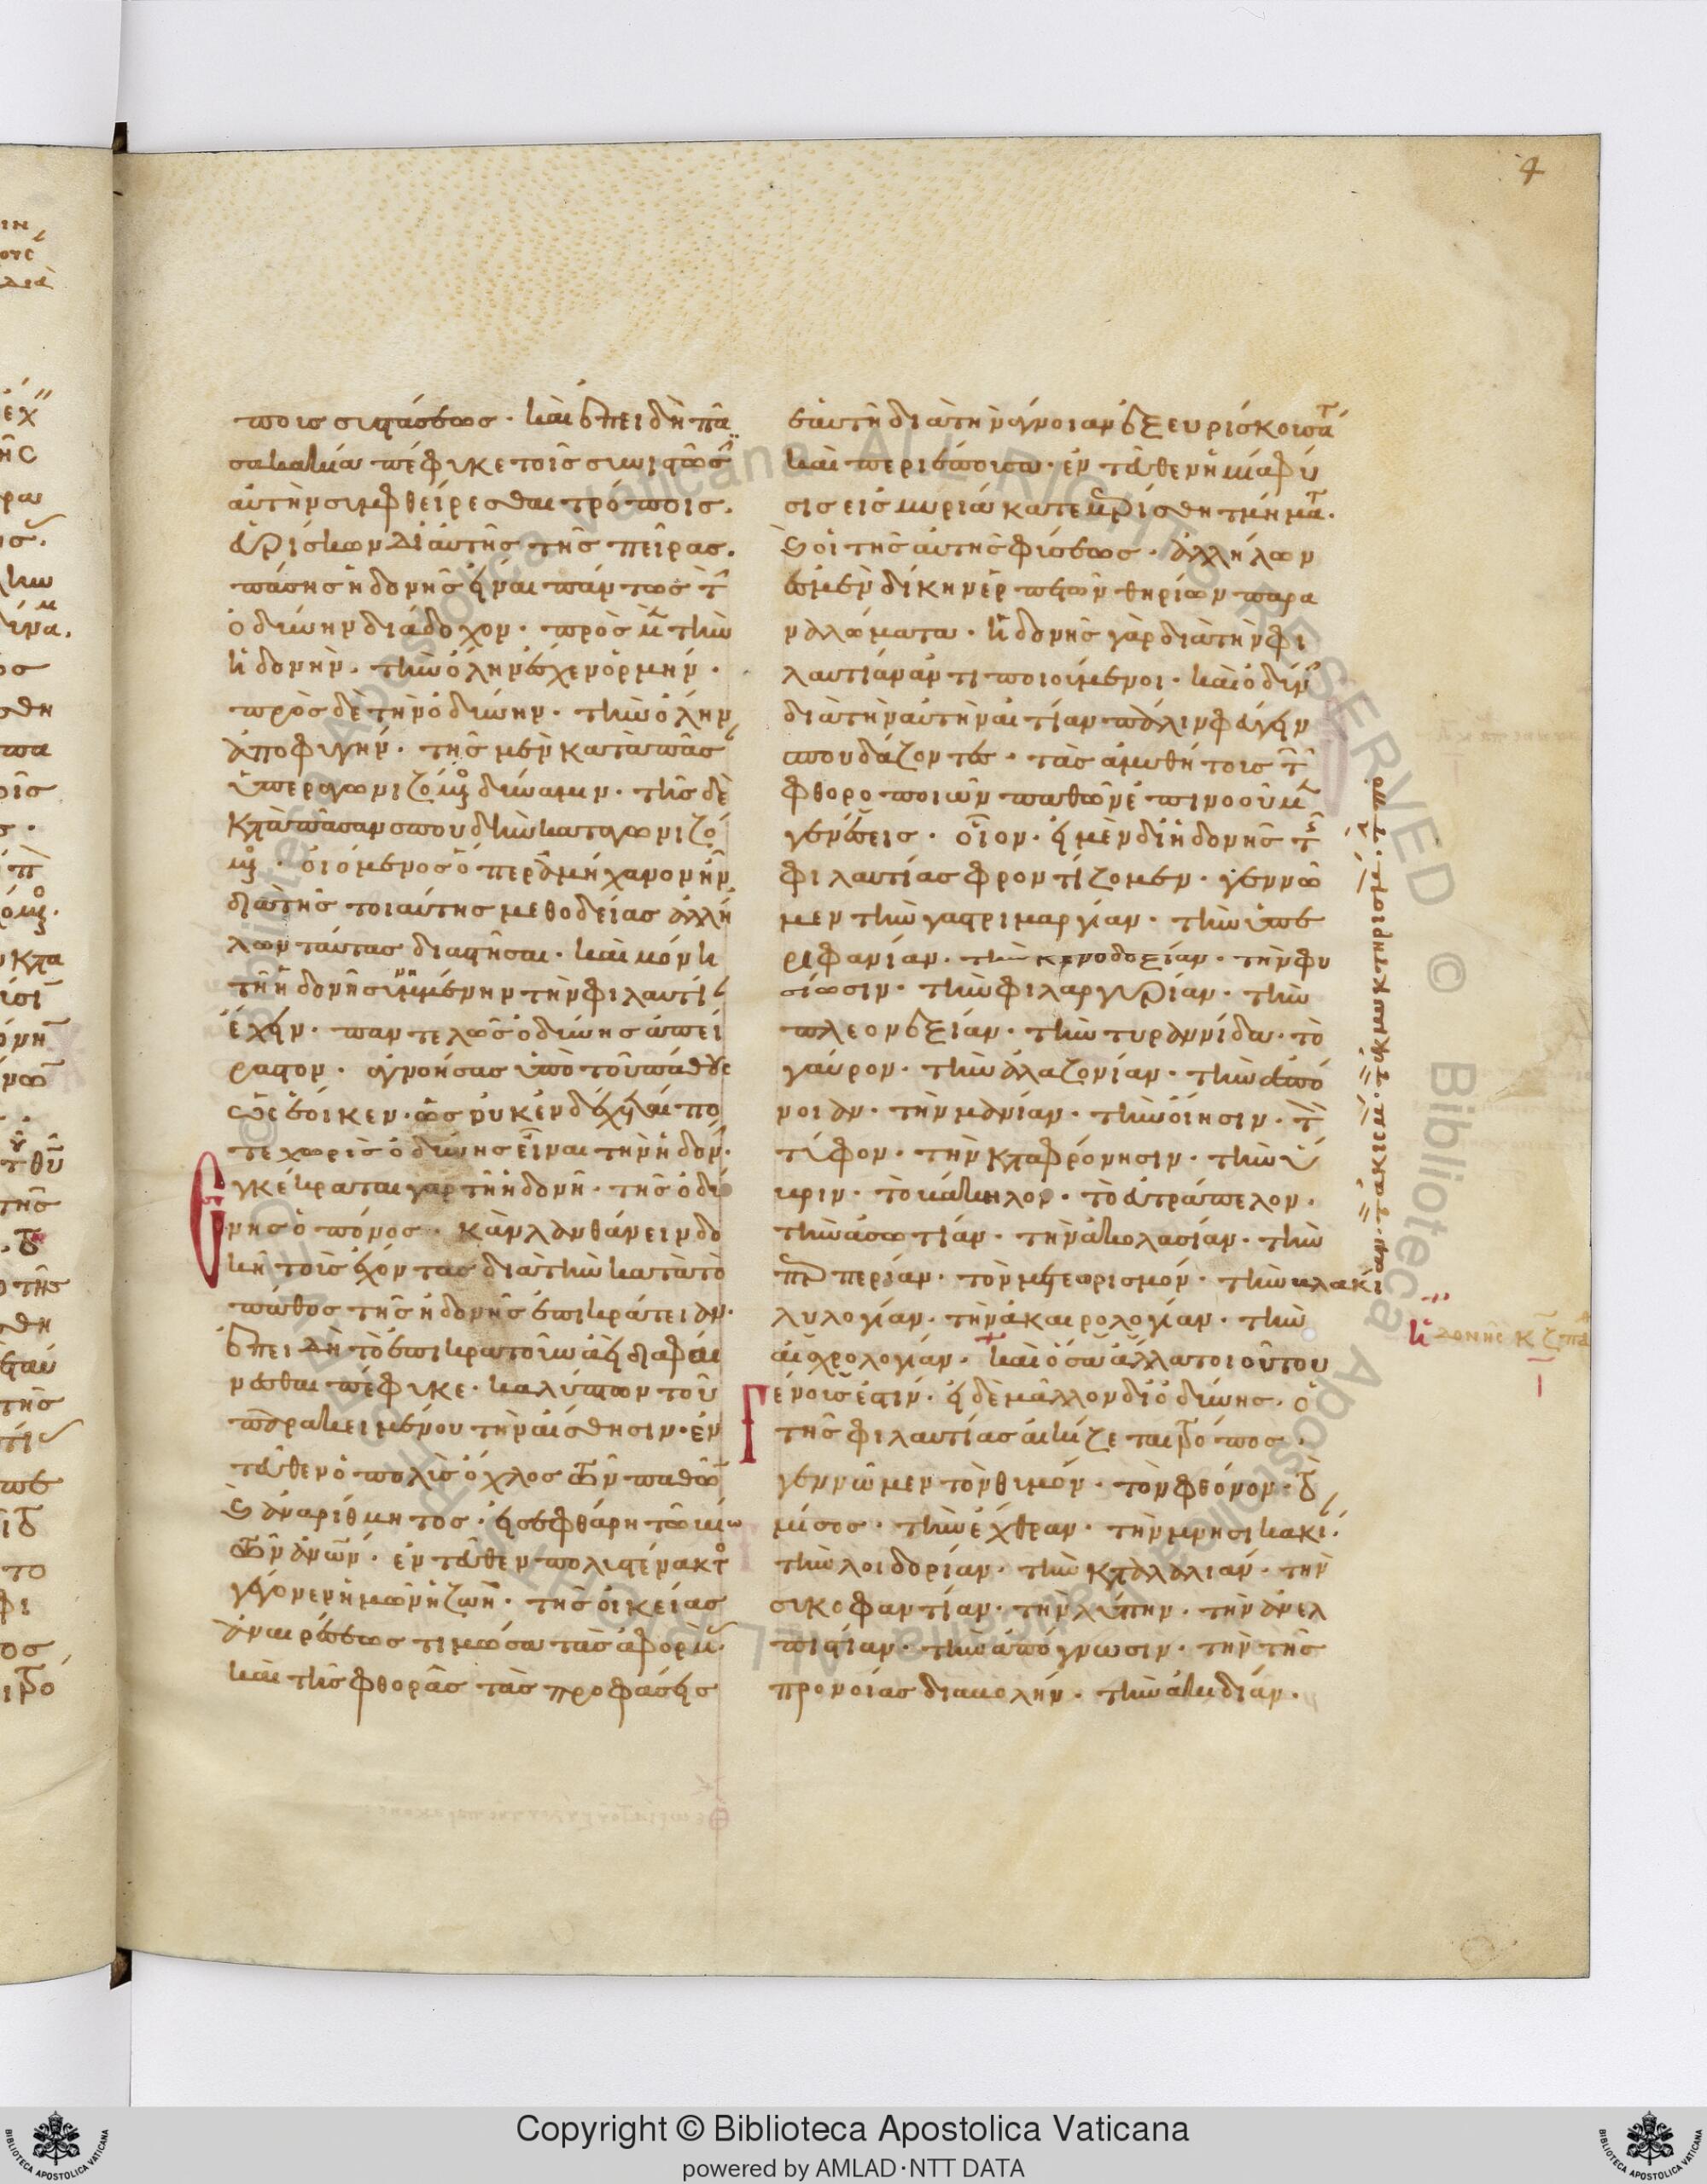 4
ποις συστάσεως · καὶ ἐπειδὴ πᾶ
σα κακία πέφυκε τοῖς συνιστῶσιν
αὐτὴν συμφθείρεσθαι τρόποις.
εὑρίσκων δι' αὐτῆς τῆς πείρας.
πάσης ἡδονῆς εἶναι πάντως τὴν
ὀδύνην διάδοχον · πρὸς μὲν τὴν
ἡδονὴν · τὴν ὅλην ἔσχεν ὁρμήν ·
πρὸς δὲ τὴν ὀδύνην · τὴν ὅλην
ἀποφυγήν · τῆς μὲν κατὰ πᾶσαν
ὑπεραγωνιζόμενος δύναμιν · τῆς δὲ
κατὰ πᾶσαν σπουδὴν καταγωνιζό
μενος · οἰόμενος ὅπερ ἀμήχανον ἦν
διὰ τῆς τοιαύτης μεθοδείας ἀλλή
λων ταύτας διαστῆσαι · καὶ μόνῃ
τῇ ἡδονῇ συνημμένην τὴν φιλαυτίαν
ἔχειν · παντελῶς ὀδύνης ἀπεί
ραστον · ἀγνοήσας ὑπὸ τοῦ πάθους
ὡς ἔοικεν · ὡς οὐκ ἐνδέχεταί πο
τε χωρὶς ὀδύνης εἶναι τὴν ἡδονήν ·
Εγκέκραται γαρ τῇ ἡδονῇ · τῆς ὀδύ
νης ὁ πόνος · κἂν λανθάνειν δο
κῇ τοῖς ἔχοντας διὰ τὴν κατὰ τὸ
πάθος τῆς ἡδονῆς ἐπικράτειαν ·
ἐπειδὴ τὸ ἐπικρατοῦν ἀεὶ διαφαί
νεσθαι πέφυκε · καλύπτον τοῦ
παρακειμένου τὴν αἴσθησιν · ἐν
τεῦθεν ὁ πολὺς ὄχλος τῶν παθῶν
καὶ ἀναρίθμητος · εἰσεφθάρη τῶ βίω
τῶν ἀνων · ἐντεῦθεν πολυστένακτος
γέγονεν ἡμῶν ἡ ζωή · τῆς οἰκείας
ἀναιρέσεως τιμῶσα τὰς ἀφορμάς ·
καὶ τῆς φθορᾶς τὰς προφάσεις
ἑαυτῇ διὰ τὴν ἄγνοιαν ἐξευρίσκουσά τε
καὶ περιέπουσα · ἐντεῦθεν ἡ μία φύ
σις εἰς μυρία κατεμερίσθη τμήματα ·
καὶ οἱ τῆς αὐτῆς φύσεως · ἀλλήλων
ἐσμὲν δίκην ἑρπετῶν θηρίων παρα
ναλώματα · ἡδονῆς γὰρ διὰ τὴν φι
λαυτίαν ἀντιποιούμενοι · καὶ ὀδύνην
διὰ τὴν αὐτὴν αἰτίαν πάλιν φυγεῖν
σπουδάζοντες · τὰς ἀμυθήτους τῶν
φθοροποιῶν παθῶν ἐπινοοῦμεν
γενέσεις · οἷον · εἰ μὲν δι' ἡδονῆς τῆς
φιλαυτίας φροντίζομεν · γεννῶ
μεν τὴν γαστριμαργίαν · τὴν ὑπε
ρηφανίαν · τὴν κενοδοξίαν · τὴν φυ
σίωσιν · τὴν φιλαργυρίαν · τὴν
πλεονεξίαν · τὴν τυραννίδα · τὸ
γαύρον · τὴν ἀλαζονίαν · τὴν ἀπό
νοιαν · τὴν μανίαν · τὴν οἴησιν · τὸν
τύφον · τὴν καταφρόνησιν · τὴν ὕ
βριν · τὸ βάκηλον · τὸ εὐτράπελον ·
τὴν ἀσωτίαν · τὴν ἀκολασίαν · τὴν
περπερίαν · τὸν μετεωρισμόν · τὴν βλακί
αν · τὸν αἰκισμόν · τὸν μυκτηρισμόν · τὴν πο
λυλογίαν · τὴν ἀκαιρολογίαν · τὴν
αἰσχρολογίαν · καὶ ὅσα ἄλλα τοιούτου
γένους ἐστίν · εἰ δὲ μᾶλλον δι' ὀδύνης · ὁ
τῆς φιλαυτίας αἰκίζεται τρόπος ·
γεννῶμεν τὸν θυμόν · τὸν φθόνον · τὸ
μίσος · τὴν ἔχθραν · τὴν μνησικακίαν ·
τὴν λοιδορίαν · τὴν καταλαλιάν · τὴν
συκοφαντίαν · τὴν λύπην · τὴν ἀνελ
πιστίαν · τὴν ἀπόγνωσιν · τὴν τῆς
προνοίας διαβολήν · τὴν ἀκηδίαν ·
Copyright © Biblioteca Apostolica Vaticana
powered by AMLAD·NTT DATA